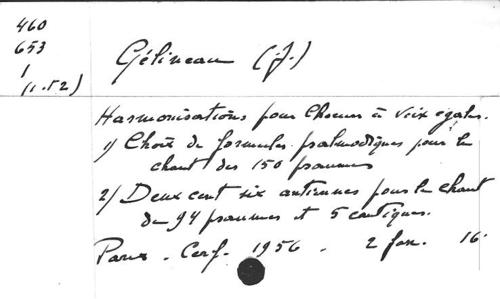 460
653
1
(1.52)
Gélineau (J.)
Harmonisations pour choeur à voix égales.
1) Choix de formules psalmodiques pour le
chant des 150 psaumes
2) Deux cent six antiennes pour le chant
de 94 psaumes et 5 cantiques.
Paris. Cerf. 1956. 2 fasc. 16°